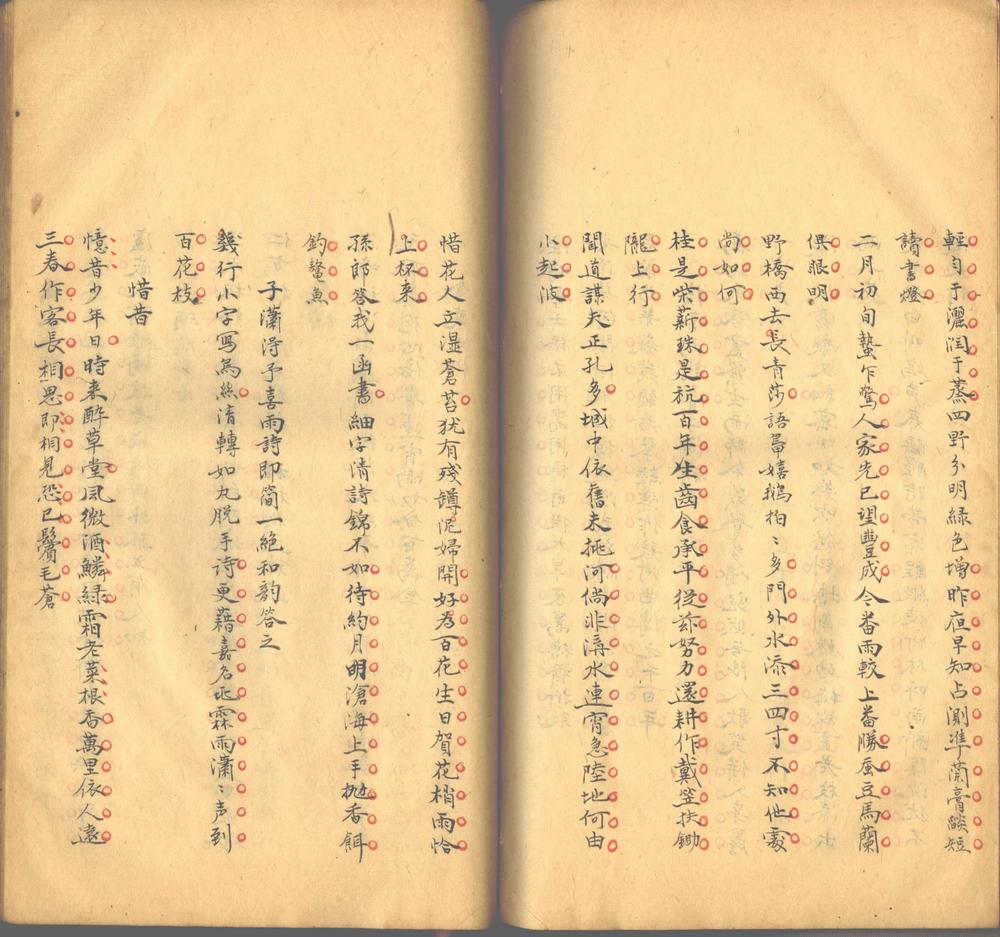 輕勻于灑潤于蒸四野分明綠色增昨夜早知占測準蘭膏燄短
讀書燈
二月初旬蟄乍驚人家先已望豐成今番雨較上番勝蚕豆馬蘭
俱眼明
野橋西去長青莎語畨嬉鵝拍〻多門外水添三四寸不知他處
尚如何
桂是柴薪珠是杭百年生齒食承平從茲努力還耕作戴笠扶鋤
隴上行
聞道謀夫正孔多城中依舊未挑河倘非溽水連宵急陸地何由
小起波
惜花人立湿蒼苔犹有殘罇泥婦開好為百花生日賀花梢雨恰
上杯来
孫郎答我一函書細字清詩錦不如待約月明滄海上手拋香餌
釣鰲魚
子瀟淂予喜雨詩即簡一絶和韵答之
幾行小字寫烏絲清轉如丸脱手诗更藉嘉名丞霖雨瀟〻声到
百花枝
惜昔
憶昔少年日時来醉草堂風微酒鱗緑霜老菜根香萬里依人遠
三春作客長相思即相見恐已鬢毛蒼